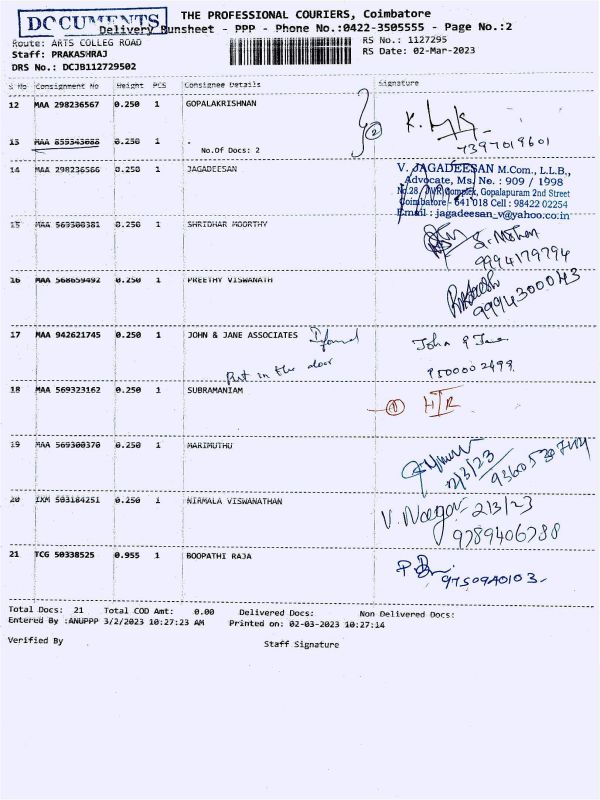 DOCUMENTS
THE PROFESSIONAL COURIERS, Coimbatore
Delivery Runsheet - PPP - Phone No.:0422-3505555 - Page No.:2
Route: ARTS COLLEG ROAD
RS No.: 1127295
Staff: PRAKASHRAJ
RS Date: 02-Mar-2023
DRS No.: DCJB112729502
S No Consignment No Weight PCS Consignee Details Signature
12 MAA 298236567 0.250 1 GOPALAKRISHNAN
2
7397019601
13 MAA 859343088 0.250 1 .
No.Of Docs: 2
14 MAA 298236566 0.250 1 JAGADEESAN
V. JAGADEESAN M.Com., L.L.B.,
Advocate, Ms. No. : 909 / 1998
No.28 / JVR Complex, Gopalapuram 2nd Street
Coimbatore - 641 018 Cell : 98422 02254
Email : jagadeesan_v@yahoo.co.in
15 MAA 569300381 0.250 1 SHRIDHAR MOORTHY
S. Mohan
9994179794
16 MAA 568659492 0.250 1 PREETHY VISWANATH
9994300043
17 MAA 942621745 0.250 1 JOHN & JANE ASSOCIATES
John & Jane
Put in the door
9500002499
18 MAA 569323162 0.250 1 SUBRAMANIAM
1 HIR
19 MAA 569300370 0.250 1 MARIMUTHU
2/3/23
20 IXM 503184251 0.250 1 NIRMALA VISWANATHAN
V. Nagar 2/3/23
9789406738
21 TCG 50338525 0.955 1 BOOPATHI RAJA
9750940103
Total Docs: 21 Total COD Amt: 0.00 Delivered Docs: Non Delivered Docs:
Entered By :ANUPPP 3/2/2023 10:27:23 AM Printed on: 02-03-2023 10:27:14
Verified By
Staff Signature